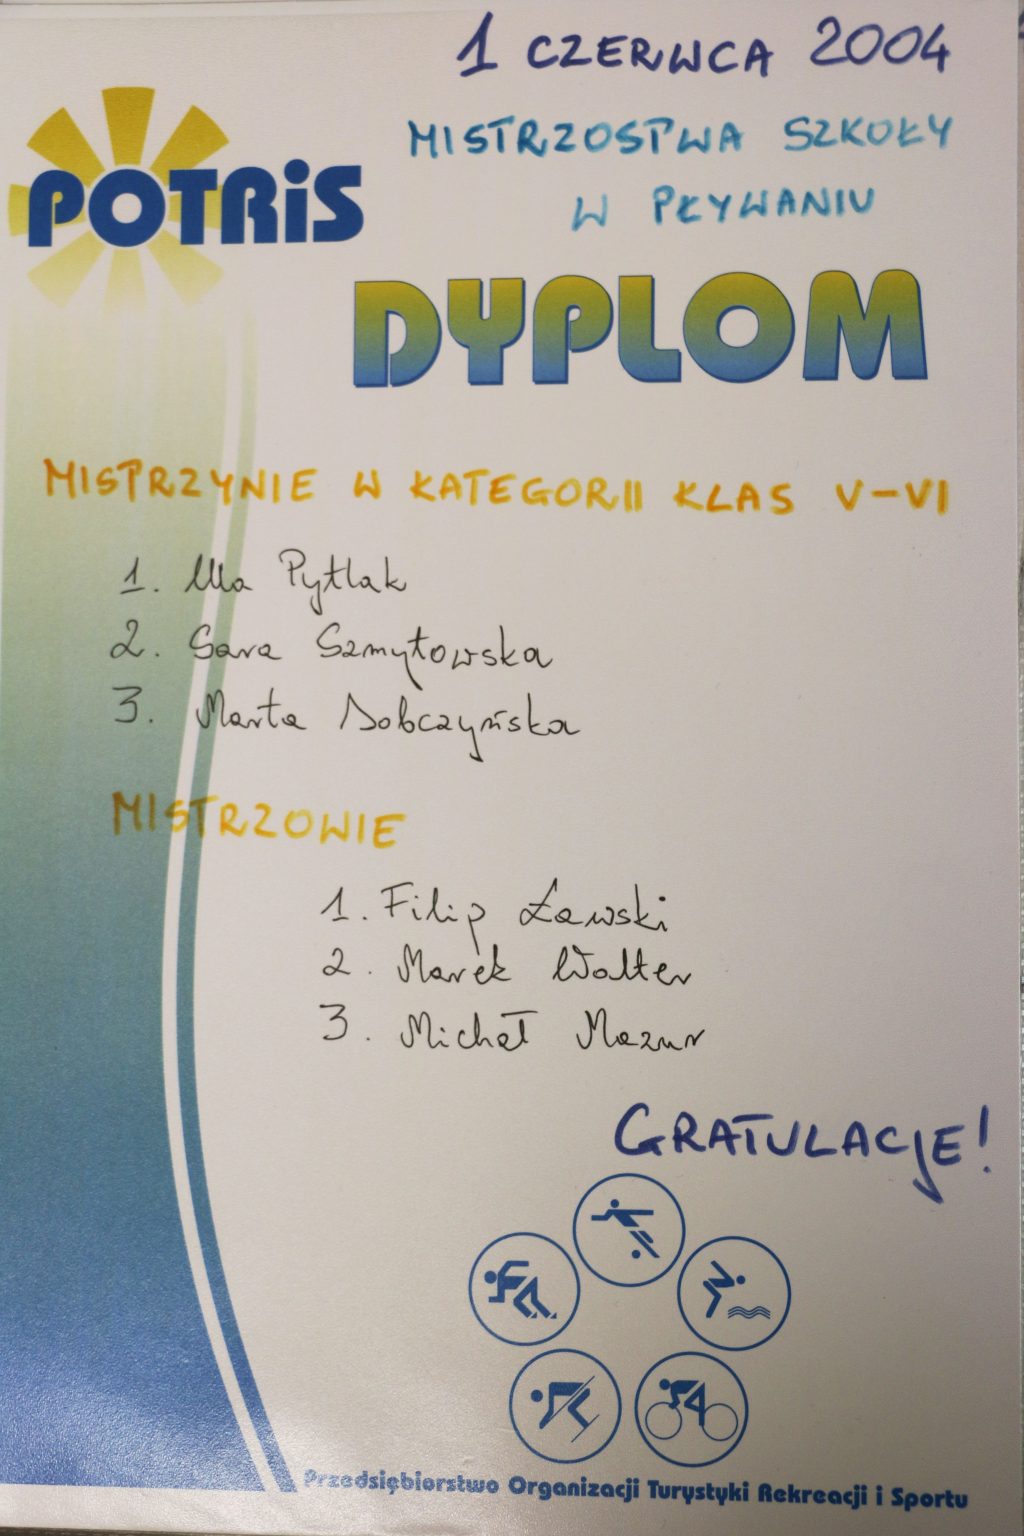 1 CZERWCA 2004
MISTRZOSTWA SZKOŁY
W PŁYWANIU
POTRiS
DYPLOM
MISTRZYNIE W KATEGORII KLAS V-VI
1. Ula Pytlak
2. Sara Szmytowska
3. Marta Dobczyńska
MISTRZOWIE
1. Filip Ławski
2. Marek Walter
3. Michał Mazur
GRATULACJE!
Przedsiębiorstwo Organizacji Turystyki Rekreacji i Sportu